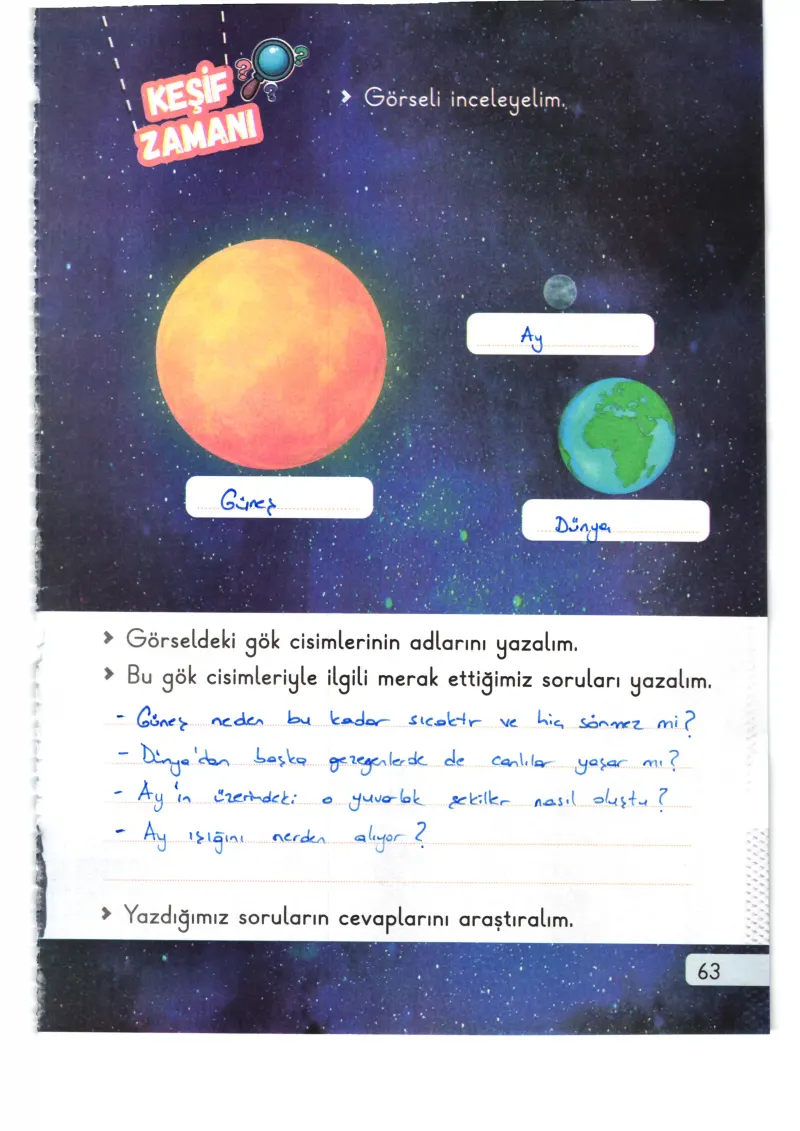 KEŞİF
ZAMANI
> Görseli inceleyelim.
Ay
Güneş
Dünya
> Görseldeki gök cisimlerinin adlarını yazalım.
> Bu gök cisimleriyle ilgili merak ettiğimiz soruları yazalım.
- Güneş neden bu kadar sıcaktır ve hiç sönmez mi?
- Dünya'dan başka gezegenlerde de canlılar yaşar mı?
- Ay'ın üzerindeki o yuvarlak şekiller nasıl oluştu?
- Ay ışığını nerden alıyor?
> Yazdığımız soruların cevaplarını araştıralım.
63